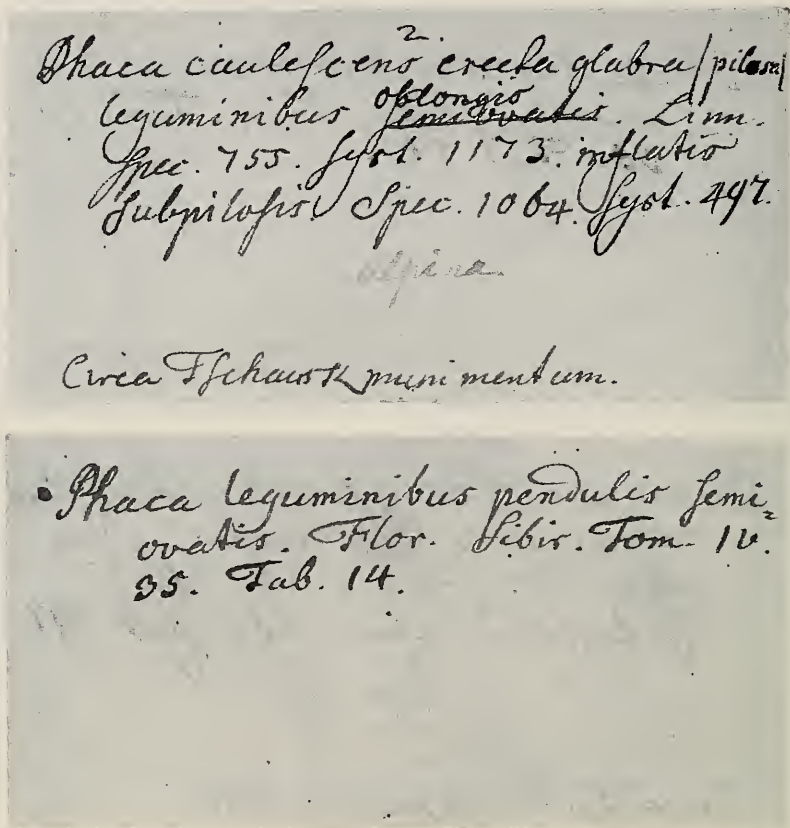 2.
Phaca caulescens erecta glabra/pilosa/
oblongis
leguminibus semiovatis. Linn.
Spec. 755. Syst. 1173. inflatis
subpilosis. Spec. 1064. Syst. 497.
alpina.
Circa Tschausk munimentum.
Phaca leguminibus pendulis semi-
ovatis. Flor. Sibir. Tom. IV.
35. Tab. 14.